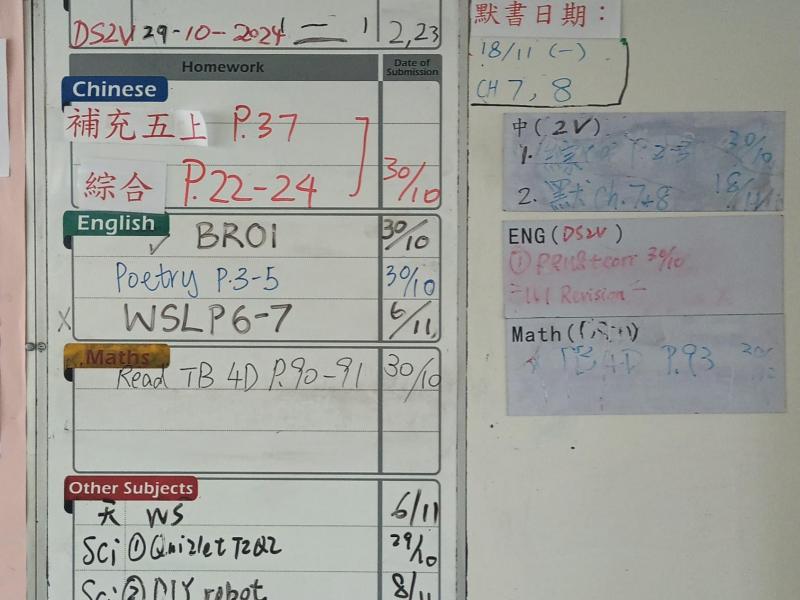 DS2V 29-10-2024 二 1 2,23
Homework Date of Submission
Chinese
補充五上 P.37
綜合 P.22-24 30/10
English
BRO1 30/10
Poetry P.3-5 30/10
WSLP6-7 6/11
Maths
Read TB 4D P.90-91 30/10
Other Subjects
天 WS 6/11
Sci ① Quizlet T2Q2 29/10
Sci ② DIY robot 8/11
默書日期：
18/11 (一)
CH 7, 8
中(2V)
1. P.2-3 30/10
2. 默 Ch.7+8 18/11
ENG(DS2V)
① 30/10
Revision
Math( )
TB 4D P.93